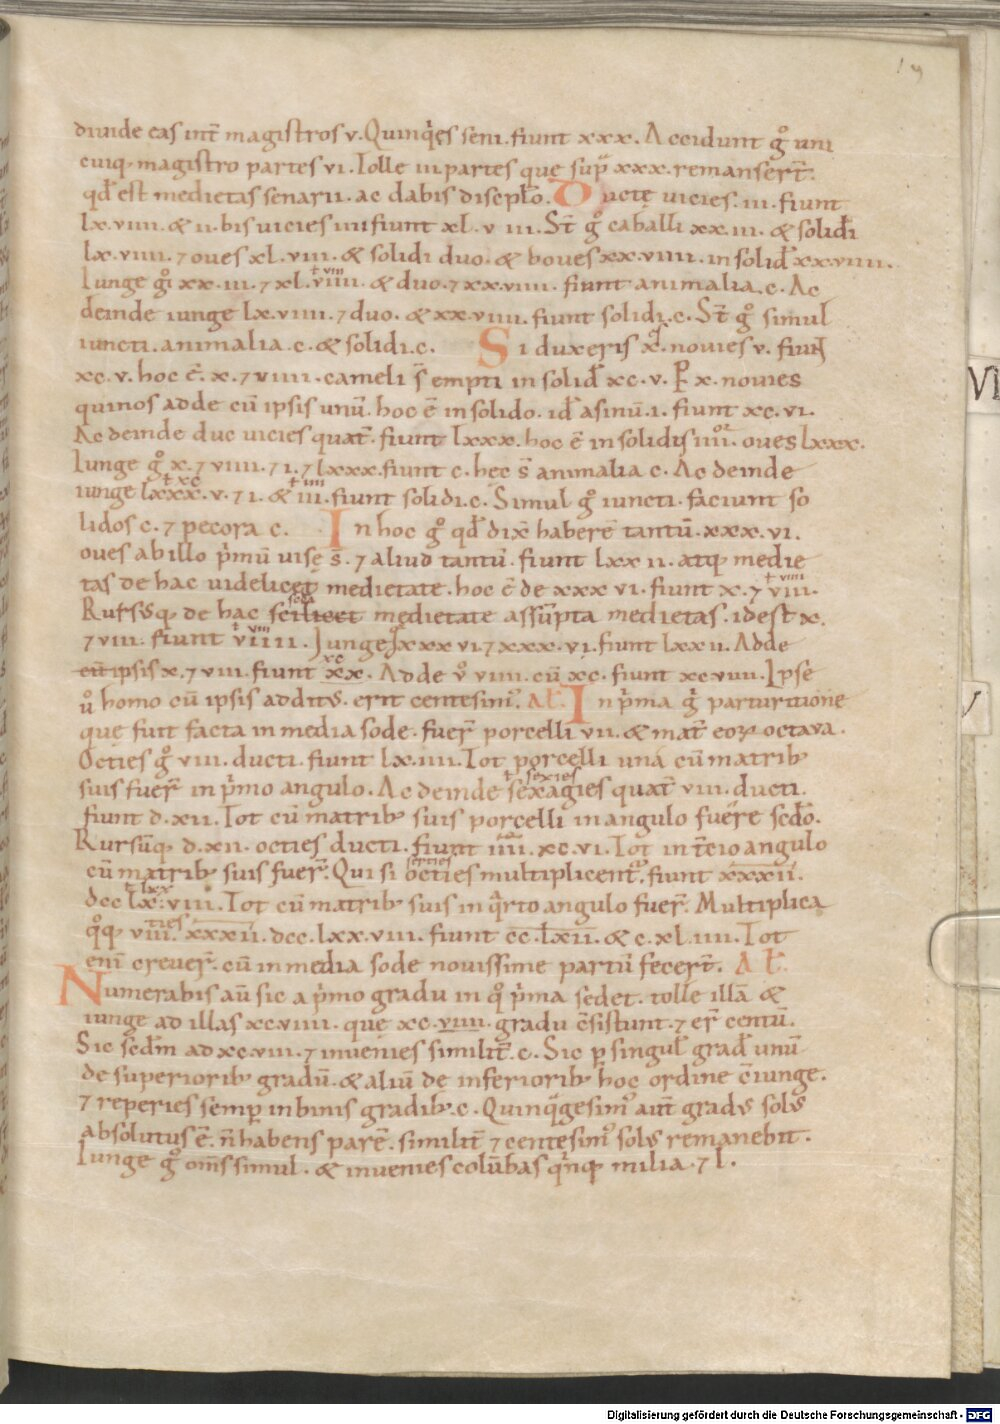 19
diuide eas int̄ magistros v. Quinq̇es seni. fiunt xxx. Accidunt g̊ uni
cuiq; magistro partes vi. Tolle iii partes que sup̄ xxx. remanser̄t.
qd̄ est medietas senarii. ac dabis discipl̄o. Ducte uicies. iii. fiunt
lx. viiii. & ii. bis uicies iiii fiunt xl. v iii. St̄ g̊ caballi xx. iii. & solid̄i
lx. viiii. ⁊ oues xl. viii. & solidi duo. & boues xx. viiii. in solid̄ xx. viiii.
Iunge g̊ xx. iii. ⁊ xl. viiii. & duo. ⁊ xx. viiii. fiunt animalia. c. Ac
ł viii
deinde iunge lx. viiii. ⁊ duo. & xx. viiii. fiunt solidi. c. St̄ g̊ simul
iuncti. animalia. c. & solidi. c. Si duxeris x. nouies v. fiunt
xc. v. hoc ē. x. ⁊ viiii. cameli s̄ empti in solid̄ xc. v. P x. nouies
quinos adde cū ipsis unū. hoc ē in solido. id̄ asinū. i. fiunt xc. vi.
Ac deinde duc uicies quat̄. fiunt lxxx. hoc ē in solidis iiii. oues lxxx.
or
Iunge g̊ x. ⁊ viiii. ⁊ i. ⁊ lxxx. fiunt c. hęc s̄ animalia c. Ac deinde
ł xc ł iiii
iunge lxxx. v. ⁊ i. & iii. fiunt solidi. c. Simul g̊ iuncti. faciunt so
lidos c. ⁊ pecora c. In hoc g̊ qd̄ dix̄ haberē tantū. xxx. vi.
oues ab illo p̓mū uisę s̄. ⁊ aliud tantū. fiunt lxx ii. atq; medie
tas de hac uidelicet medietate. hoc ē de xxx vi. fiunt x. ⁊ viii.
ł viiii
Rursūsq; de hac scilicet medietate assūpta medietas. id est x.
⁊ viii. fiunt viiii. Iunge g̊ xxx vi. ⁊ xxx. vi. fiunt lxx ii. Adde
ł viii
cū ipsis x. ⁊ viii. fiunt xx. Adde v̊ viiii. cū xc. fiunt xc viiii. Ipse
xc
ů homo cū ipsis additus. erit centesim̓. Al̄. In p̓ma g̊ parturitione
que fuit facta in media sode. fuer̄ porcelli vii. & mat̄ eoꝝ octaua.
Octies g̊ viii. ducti. fiunt lx. iiii. Tot porcelli una cū matrib;
suis fuer̄ in p̓mo angulo. Ac deinde sexagies quat̄ viii. ducti.
ł sexies
fiunt d. xii. Tot cū matrib; suis porcelli in angulo fuēre sc̄do.
Rursūq; d. xii. octies ducti. fiunt iiii. xc. vi. Tot in t̄cio angulo
cū matrib; suis fuer̄. Qui si octies multiplicent̄. fiunt xxxii.
ł lxx
dcc lx. viii. Tot cū matrib; suis in q̓rto angulo fuer̄. Multiplica
q̊q; viii. xxxii. dcc. lxx. viii. fiunt cc. lxii. & c. xl. iiii. Tot
ties
enī creuer̄. cū in media sode nouissime partū fecer̄t. Al̄.
Numerabis aū sic a p̓mo gradu in q̊ p̓ma sedet. tolle illā &
iunge ad illas xc. viiii. que xc. viiii. gradu c̄sistunt. ⁊ er̄ centū.
Sic sc̄dm ad xc. viii. ⁊ inuenies similit̄. c. Sic p singul̄ grad̄ unū
de superiorib; gradū. & aliū de inferiorib; hoc ordine c̄iunge.
⁊ reperies semp̄ in binis gradib; c. Quinq̓gesim̓ aut̄ gradus solus
absolutus ē. n̄ habens parē. similit̄ ⁊ centesim̓ solus remanebit.
Iunge g̊ om̄s simul. & inuenies colūbas q̓nq; milia. ⁊ l.
VI
Digitalisierung gefördert durch die Deutsche Forschungsgemeinschaft - DFG